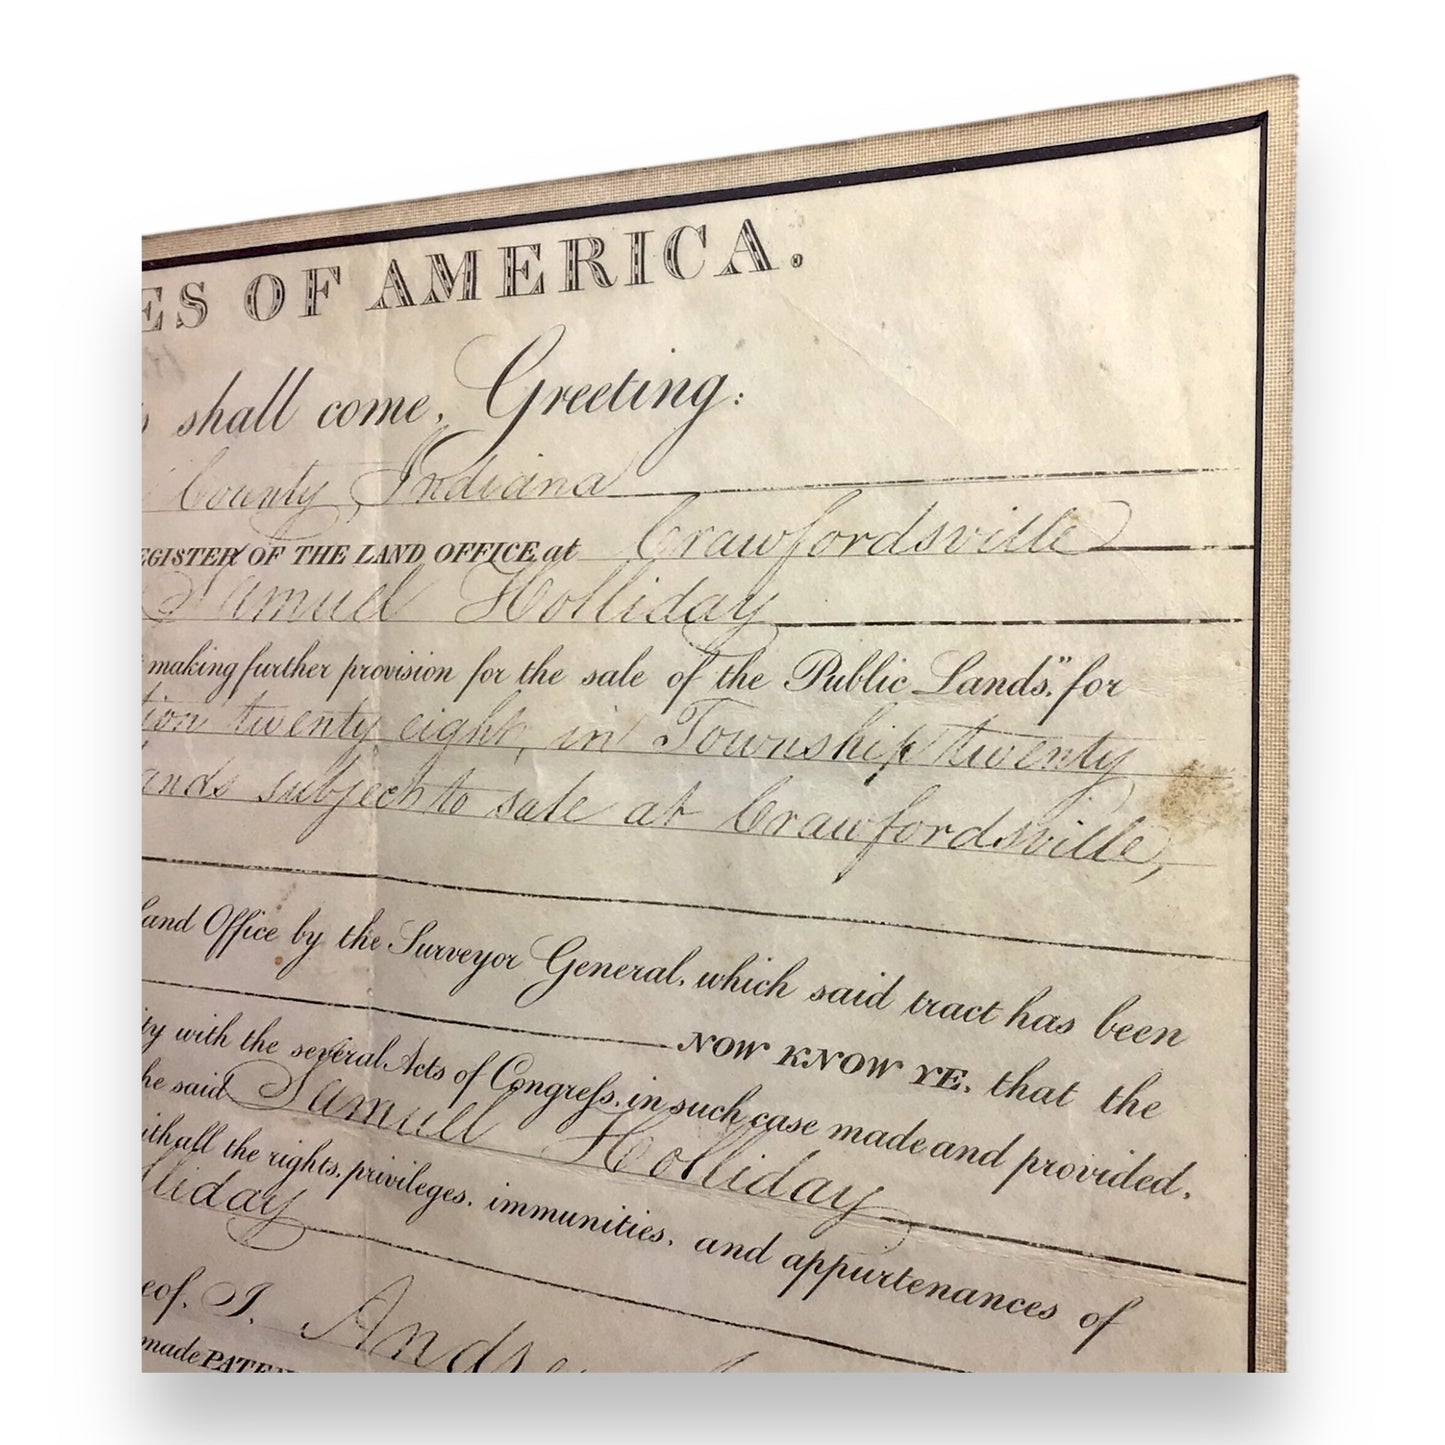 ES OF AMERICA.
shall come, Greeting:
County, Indiana
EGISTER OF THE LAND OFFICE at Crawfordsville
Samuel Holliday
making further provision for the sale of the Public Lands," for
tion twenty eight, in Township twenty
ands subject to sale at Crawfordsville,
Land Office by the Surveyor General, which said tract has been
NOW KNOW YE, that the
ity with the several Acts of Congreſs, in such case made and provided,
he said Samuel Holliday
ith all the rights, privileges, immunities, and appurtenances of
lliday
eof, I, Andrew
made PATEN